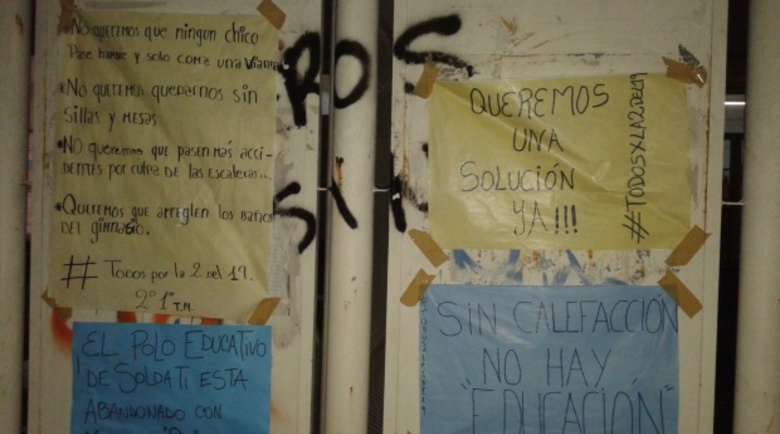 * No queremos que ningun chico
Pase hambre y solo coma una vianda
* No queremos quedarnos sin
sillas y mesas
* No queremos que pasen más acci-
dentes por culpa de las escaleras...
* Queremos que arreglen los baños
del gimnasio.
# Todos por la 2 del 19.
2° 1° T.M.
EL POLO EDUCATIVO
DE SOLDATI ESTA
ABANDONADO CON
QUEREMOS
UNA
SOLUCIÓN
YA!!!
#TODOSXLA2DEL19
SIN CALEFACCIÓN
NO HAY
"EDUCACIÓN"